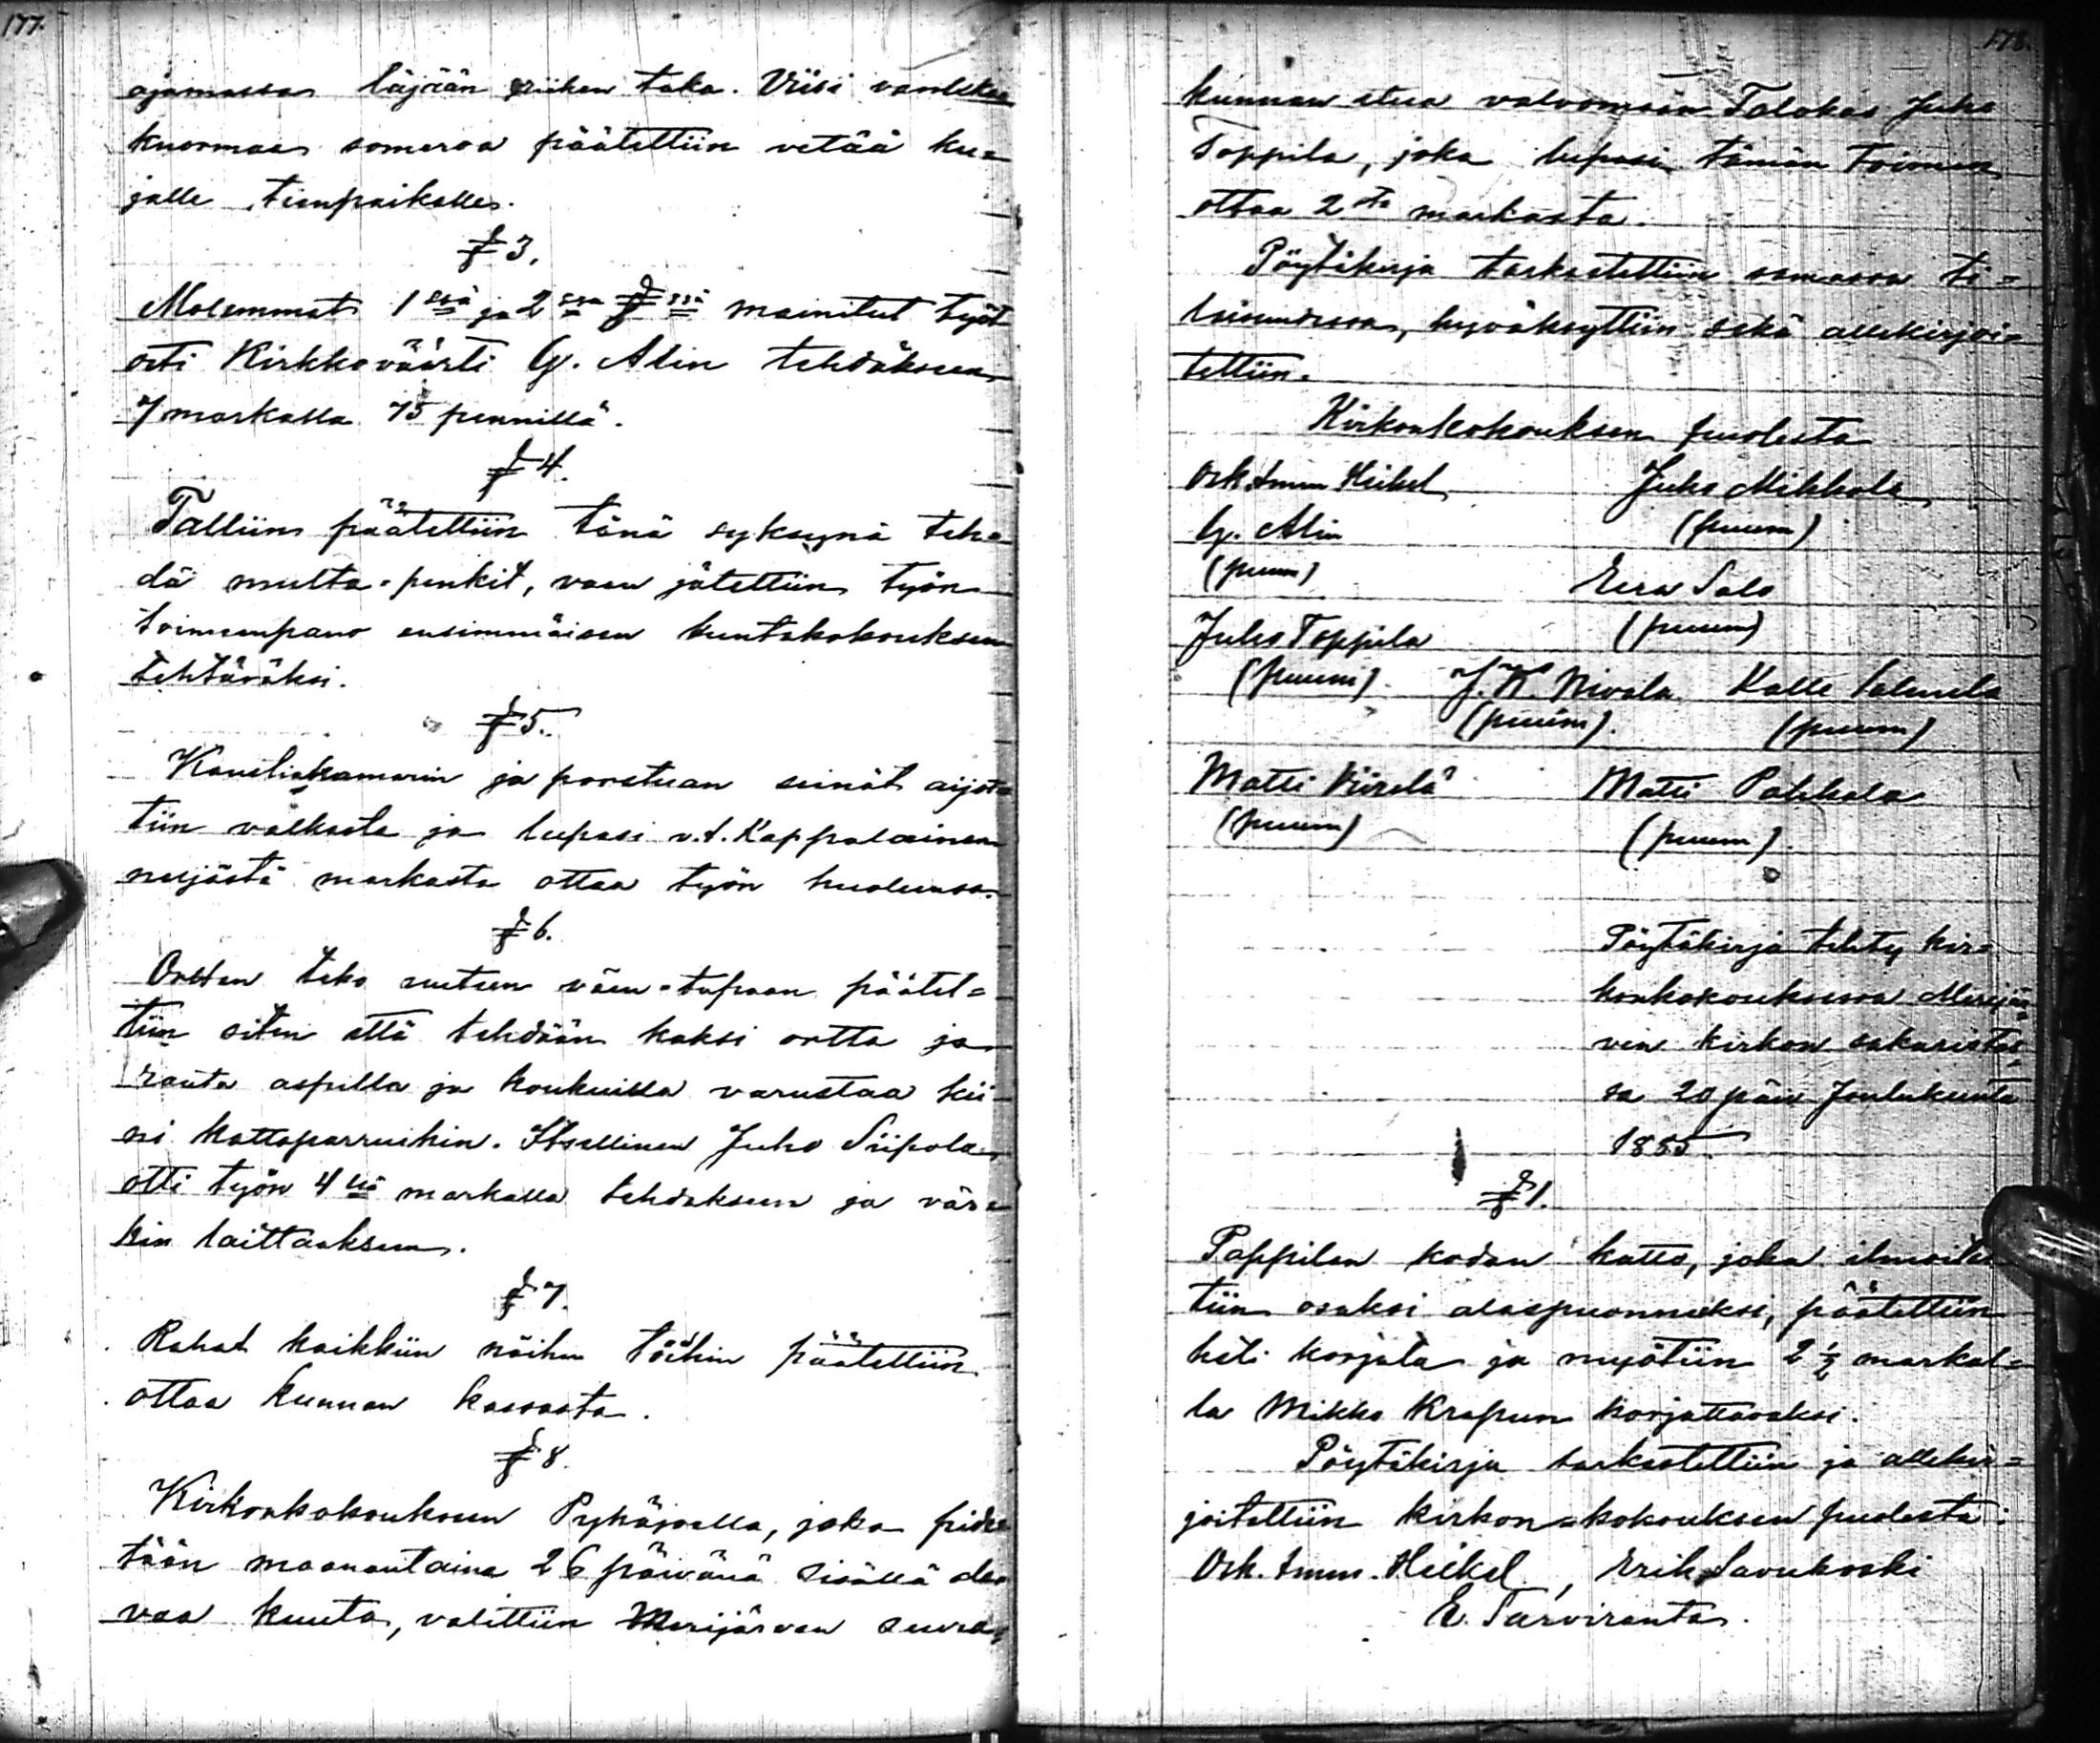 177.
ajamassa läjään riihen taka. Viisi vandeka
kuormaa someroa päätettiin vetää ku=
jalle tienpaikalle.
§ 3.
Molemmat 1 ssä ja 2 ssa § ssä mainitut työt
otti Kirkkoväärti G. Alin tehdäksen
7 markalla 75 pennillä.
§ 4.
Talliin päätettiin tänä syksynä teh=
dä multa=penkit, vaan jätettiin työn
toimeenpano ensimmäisen kuntakokouksen
tehtäväksi.
§ 5.
Kanslia kamarin ja porstuan seinät aijot
tiin valkasta ja lupasi v.t. Kappalainen
neljästä markasta ottaa työn huoleensa.
§ 6.
Orsten teko uuteen väen=tupaan päätet=
tiin siten että tehdään kaksi ortta ja
rauta aspilla ja koukuilla varustaa kii
ni kattoparruihin. Itsellinen Juho Siipola
otti työn 4 llä markalla tehdäksen ja vär=
kin laittaaksen.
§ 7.
Rahat kaikkiin näihin töihin päätettiin
ottaa kunnan kassasta.
§ 8.
Kirkonkokouksen Pyhäjoella, joka pide
tään maanantaina 26 päivänä sisällä ole
vaa kuuta, valittiin Merijärven seura=
178.
kunnan etua valvomaan Talokas Juho
Toppila, joka lupasi tämän toimen
ottaa 2 sta markasta.
Pöytäkirja tarkastettiin samassa ti=
laisuudessa, hyväksyttiin sekä allekirjoi=
tettiin.
Kirkonkokouksen puolesta
Osk. Imm. Heikel Juho Mikkola
G. Alin (puum)
(puum) Eera Salo
Juho Toppila (puum)
(puum) J. K. Nivala Kalle Salmela
(puum) (puum)
Matti Viirelä Matti Pahkala
(puum) (puum)
Pöytäkirja tehty kir=
konkokouksessa Merijär=
ven kirkon sakaristos=
sa 20 päiv Joulukuuta
1885.
§ 1.
Pappilan kodan katto, joka ilmoitet
tiin osaksi alaspuonneeksi, päätettiin
heti korjata ja myötiin 2 ½ markal=
la Mikko Krapun korjattavaksi.
Pöytäkirja tarkastettiin ja allekir=
joitettiin kirkon=kokouksen puolesta:
Osk. Imm. Heikel, Erik Savukoski
E. Tarviranta.